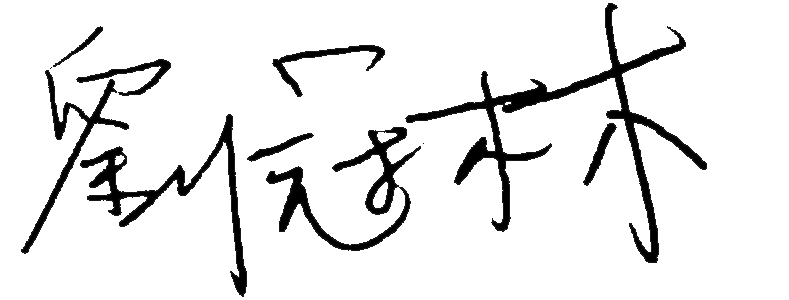 劉冠林